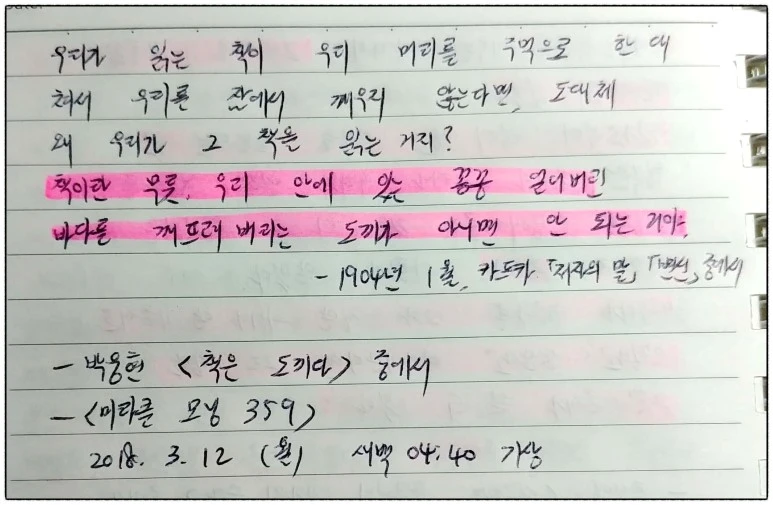 우리가 읽는 책이 우리 머리를 주먹으로 한 대
쳐서 우리를 잠에서 깨우지 않는다면, 도대체
왜 우리가 그 책을 읽는 거지?
책이란 무릇, 우리 안에 있는 꽁꽁 얼어버린
바다를 깨뜨려 버리는 도끼가 아니면 안 되는 거야.
- 1904년 1월, 카프카 「저자의 말」, 「변신」, 중에서
- 박웅현 <책은 도끼다> 중에서
- <미라클 모닝 359>
2018. 3. 12 (월) 새벽 04:40 기상